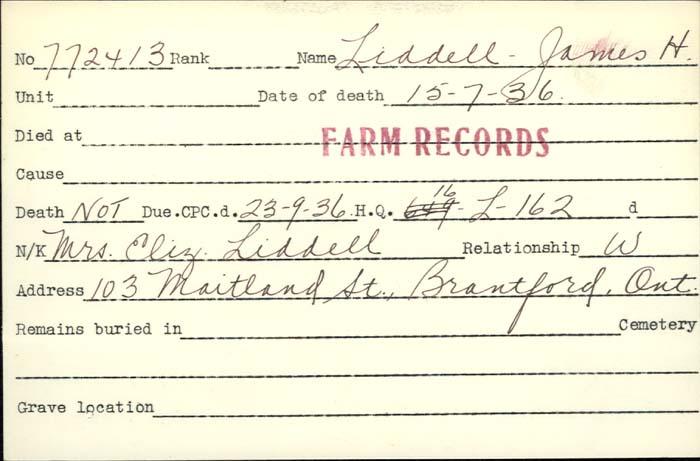 No 772413 Rank Name Liddell - James H.
Unit Date of death 15-7-36.
Died at FARM RECORDS
Cause
Death NOT Due.CPC.d. 23-9-36 H.Q. 649 16 - L-162 d
N/K Mrs. Eliz. Liddell Relationship W
Address 103 Maitland St., Brantford, Ont.
Remains buried in Cemetery
Grave location